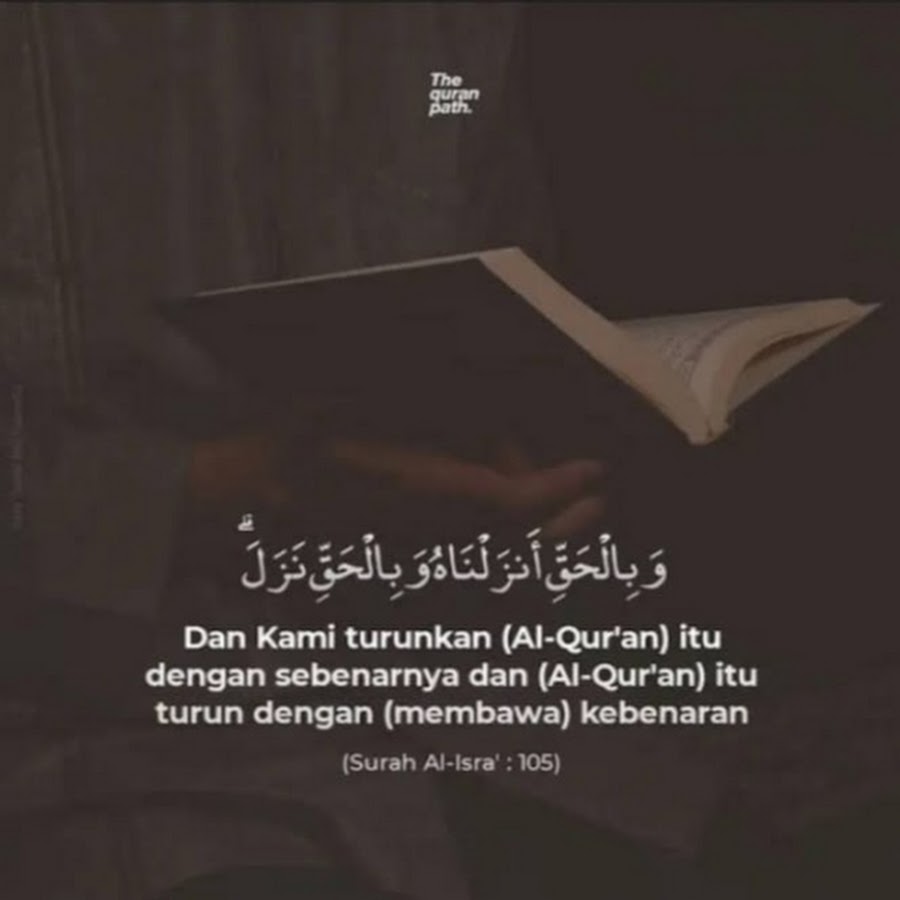 The
quran
path.
وَبِالْحَقِّ أَنزَلْنَاهُ وَبِالْحَقِّ نَزَلَ ۗ
Dan Kami turunkan (Al-Qur'an) itu
dengan sebenarnya dan (Al-Qur'an) itu
turun dengan (membawa) kebenaran
(Surah Al-Isra' : 105)